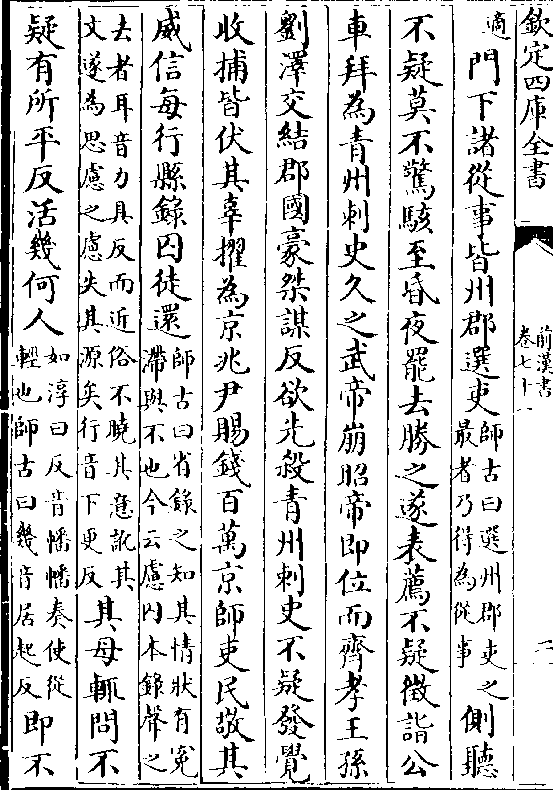 欽定四庫全書
前漢書
卷七十一
二
適門下諸從事皆州郡選吏師古曰選州郡吏之最者乃得為從事側聽
不疑莫不驚駭至昏夜罷去勝之遂表薦不疑徵詣公
車拜為青州刺史久之武帝崩昭帝即位而齊孝王孫
劉澤交結郡國豪桀謀反欲先殺青州刺史不疑發覺
收捕皆伏其辜擢為京兆尹賜錢百萬京師吏民敬其
威信每行縣錄囚徒還師古曰省錄之知其情狀有冤滯與不也今云慮囚本錄聲之
去者耳音力具反而近俗不曉其意訛其文遂為思慮之慮失其源矣行音下更反其母輒問不
疑有所平反活幾何人如淳曰反音幡幡奏使從輕也師古曰幾音居起反即不